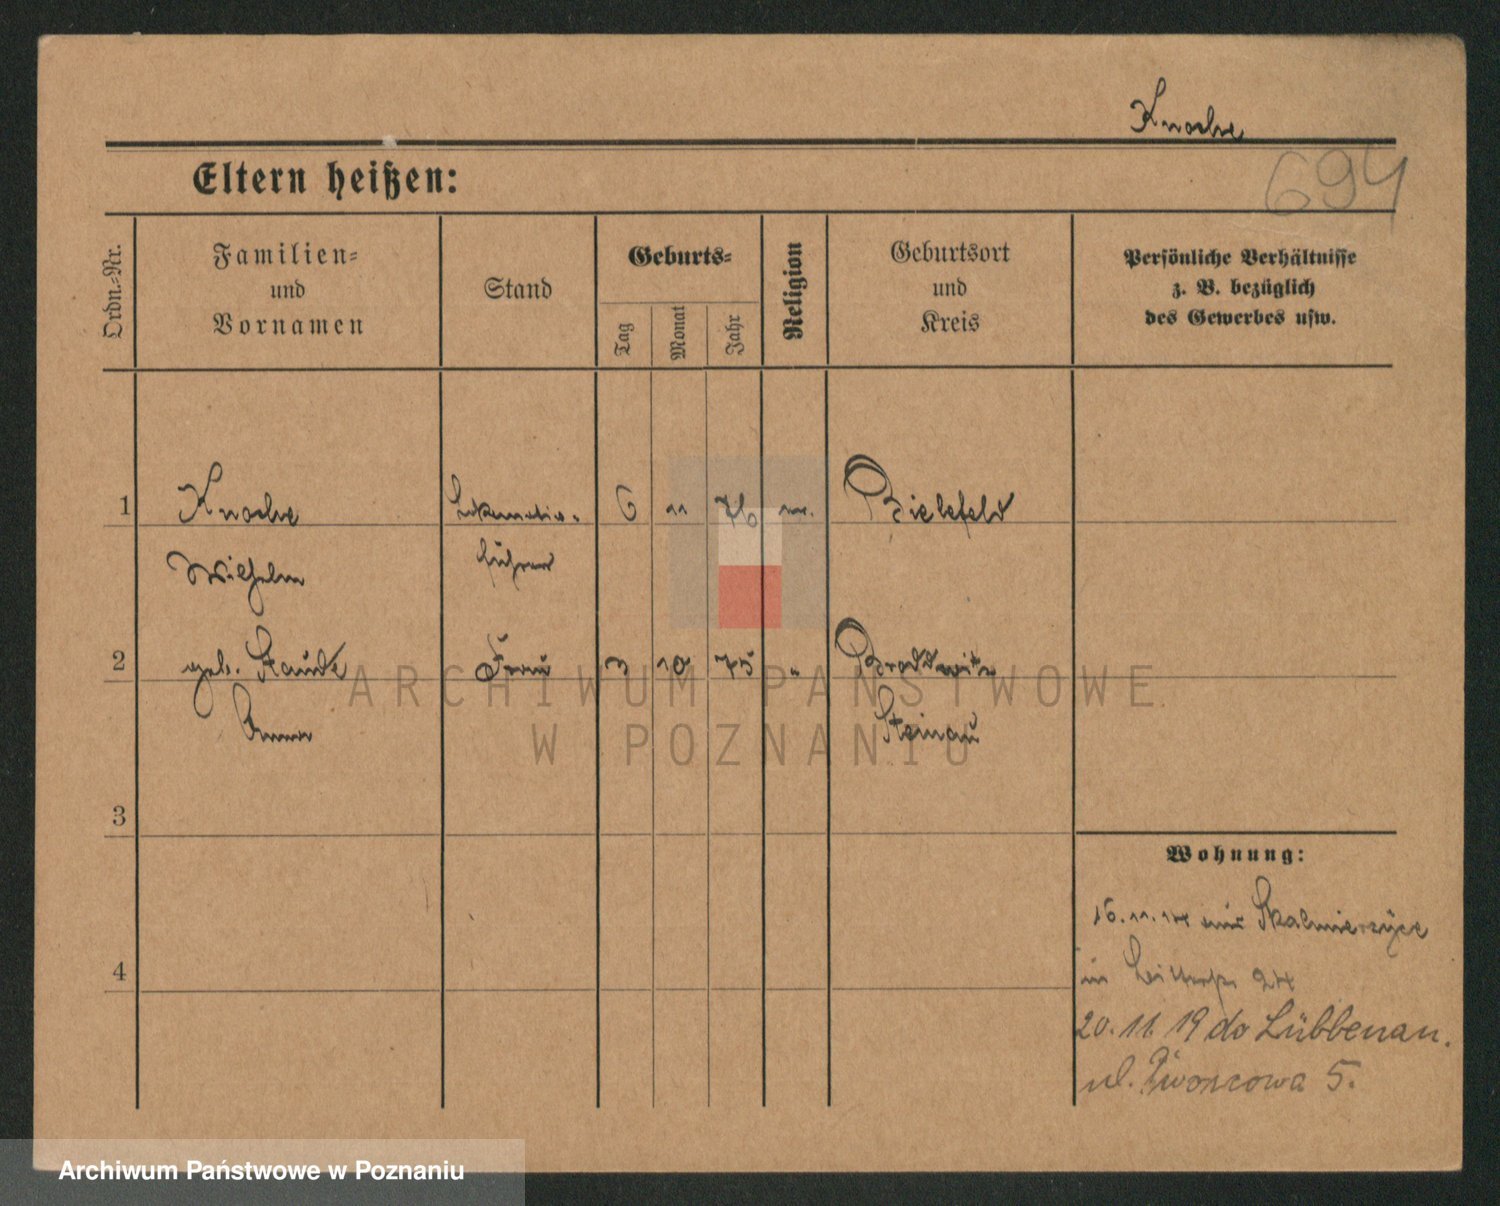 Knoche
694
Eltern heißen:
Ordn.=Nr.
Familien=
und
Vornamen
Stand
Geburts=
Tag
Monat
Jahr
Religion
Geburtsort
und
Kreis
Persönliche Verhältnisse
z. B. bezüglich
des Gewerbes usw.
1 Knoche Lokomotiv- 6 11 76 ev. Bielefeld
Wilhelm führer
2 geb. Staude Frau 3 10 75 " 
Anna Steinau
3
4
Wohnung:
16.11.14 aus Skalmierzyce
in 24
20.11.19 do Lübbenau.
ul. Dworcowa 5.
ARCHIWUM PAŃSTWOWE
W POZNANIU
Archiwum Państwowe w Poznaniu